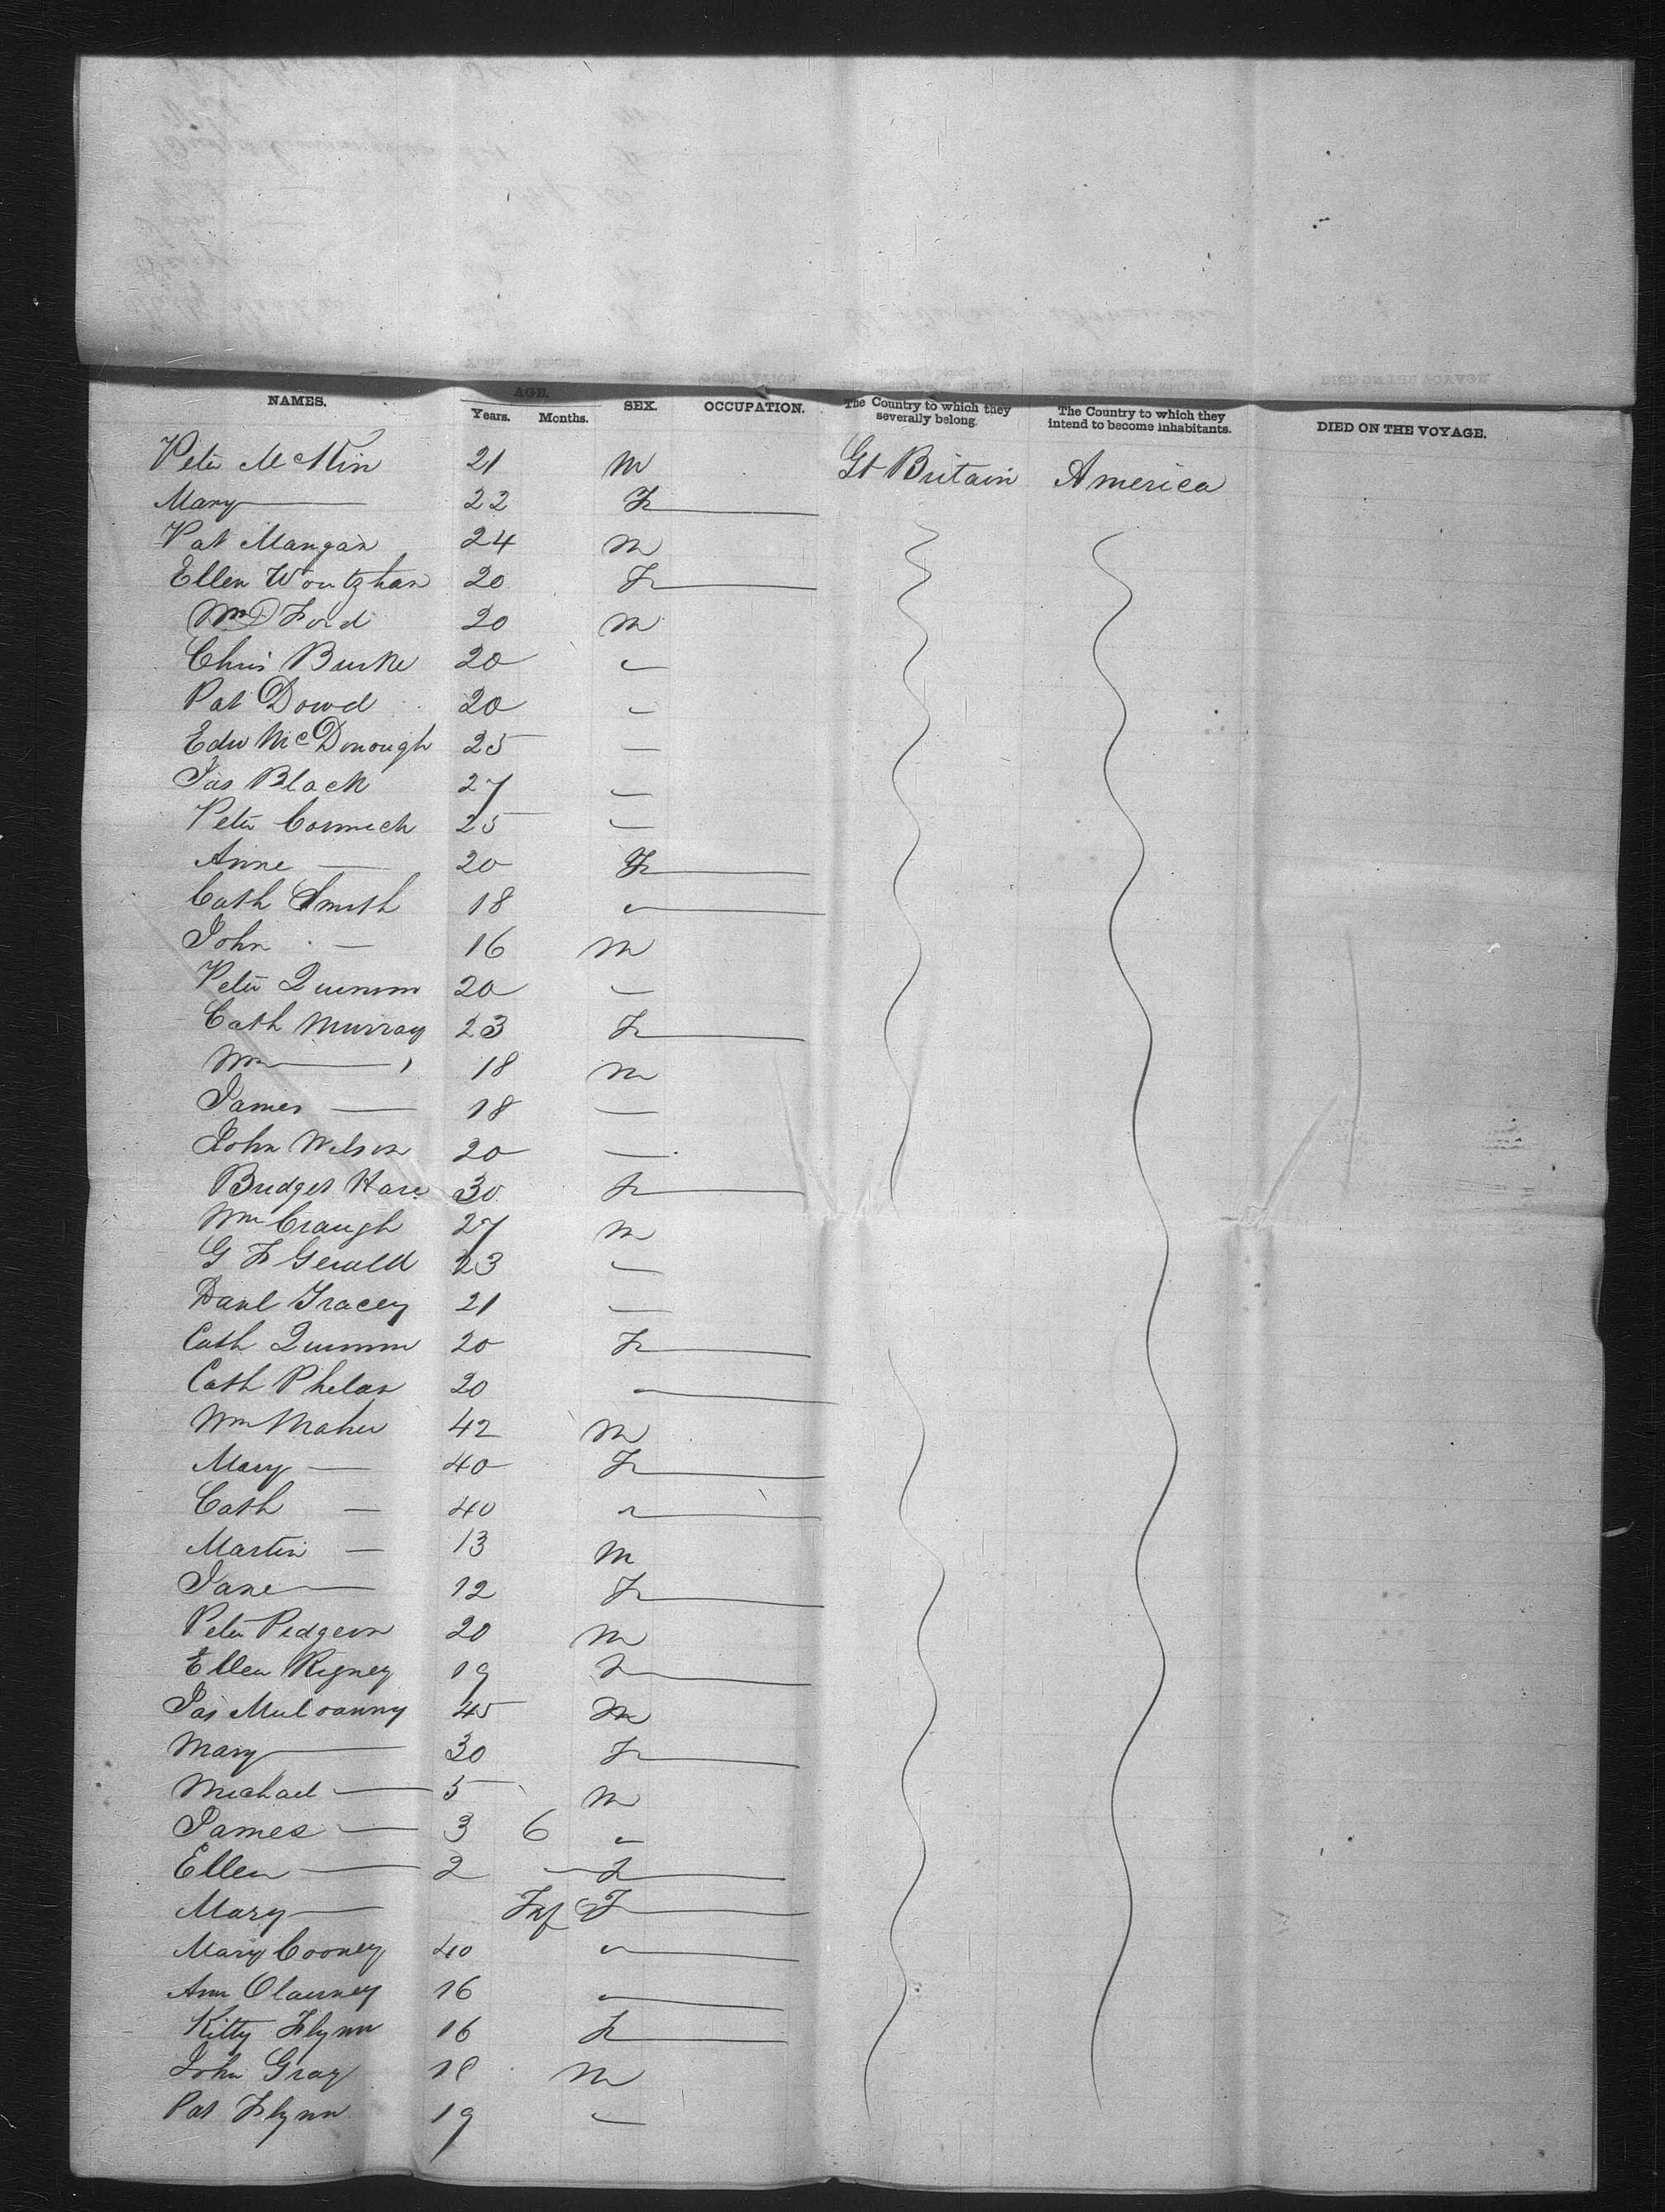 NAMES. AGE. Years. Months. SEX. OCCUPATION. The Country to which they severally belong. The Country to which they intend to become inhabitants. DIED ON THE VOYAGE.
Peter 21 M Gt Britain America
Mary — 22 F
Pat Mangan 24 M
Ellen 20 F
Wm Ford 20 M
Chris Burke 20 "
Pat Dowd 20 "
Edw McDonough 25 —
Jas Black 27 —
Peter Cormick 25 —
Anne — 20 F
Cath Smith 18 "
John — 16 M
Peter Quinnn 20 —
Cath Murray 23 F
Wm — 18 M
James — 18 —
John Wilson 20 —
Bridget Hare 30 F
Wm Craugh 27 M
G F Gerald 23 —
Danl Tracey 21 —
Cath Quinnn 20 F
Cath Phelan 20 "
Wm Maher 42 M
Mary — 40 F
Cath — 40 "
Martin — 13 M
Jane — 12 F
Peter Pidgeon 20 M
Ellen Rigney 19 F
Jas Muloanny 45 M
Mary — 30 F
Michael — 5 M
James — 3 6 "
Ellen — 2 — F
Mary — Inf F
Mary Cooney 40 "
Ann Olauney 16 "
Kitty Flynn 16 F
John Gray 18 M
Pat Flynn 19 —